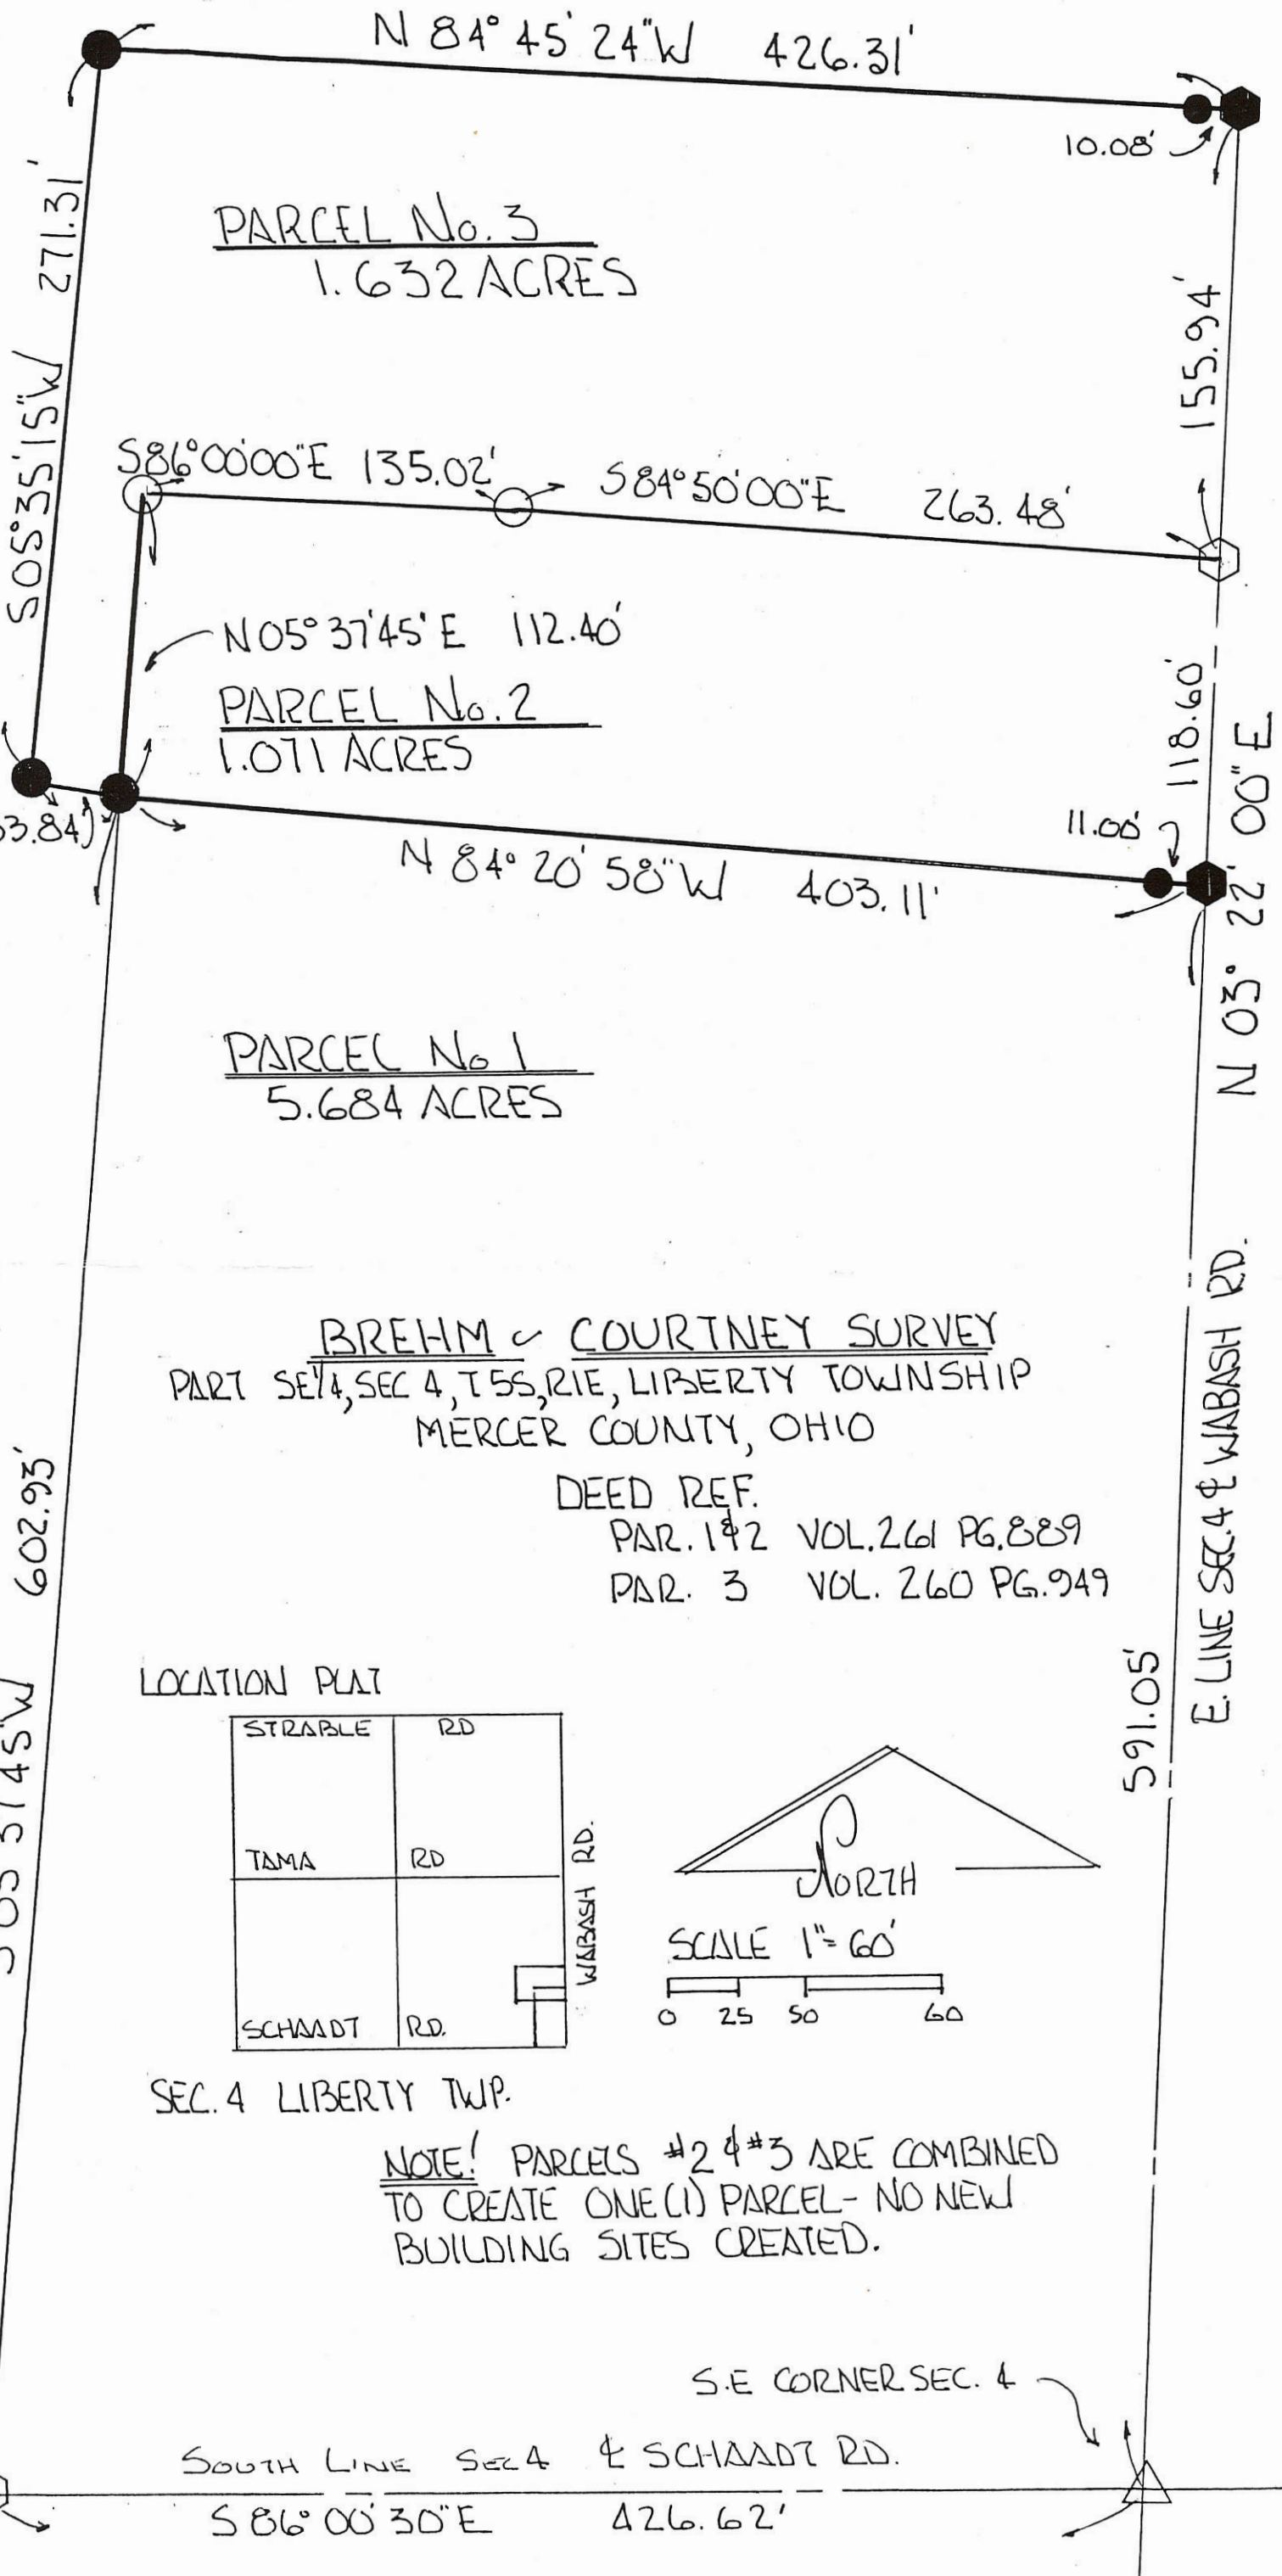 N 84° 45' 24" W 426.31'
10.08'
271.31'
S05°35'15"W
PARCEL No. 3
1.632 ACRES
155.94'
S86°00'00"E 135.02'
S84°50'00"E 263.48'
N05°37'45'E 112.40'
PARCEL No. 2
1.071 ACRES
118.60'
3.84')
11.00'
N 84° 20' 58" W 403.11'
N 03° 22' 00" E
PARCEL No 1
5.684 ACRES
BREHM ~ COURTNEY SURVEY
PART SE1/4, SEC 4, T5S, R1E, LIBERTY TOWNSHIP
MERCER COUNTY, OHIO
DEED REF.
PAR. 1&2 VOL. 261 PG. 889
PAR. 3 VOL. 260 PG. 949
E. LINE SEC. 4 ℄ WABASH RD.
602.93'
591.05'
LOCATION PLAT
STRABLE RD
TAMA RD
WABASH RD.
SCHAADT RD.
NORTH
SCALE 1"= 60'
0 25 50 60
SEC. 4 LIBERTY TWP.
NOTE! PARCELS #2 & #3 ARE COMBINED
TO CREATE ONE (1) PARCEL - NO NEW
BUILDING SITES CREATED.
S.E CORNER SEC. 4
SOUTH LINE SEC 4 ℄ SCHAADT RD.
S 86° 00' 30" E 426.62'